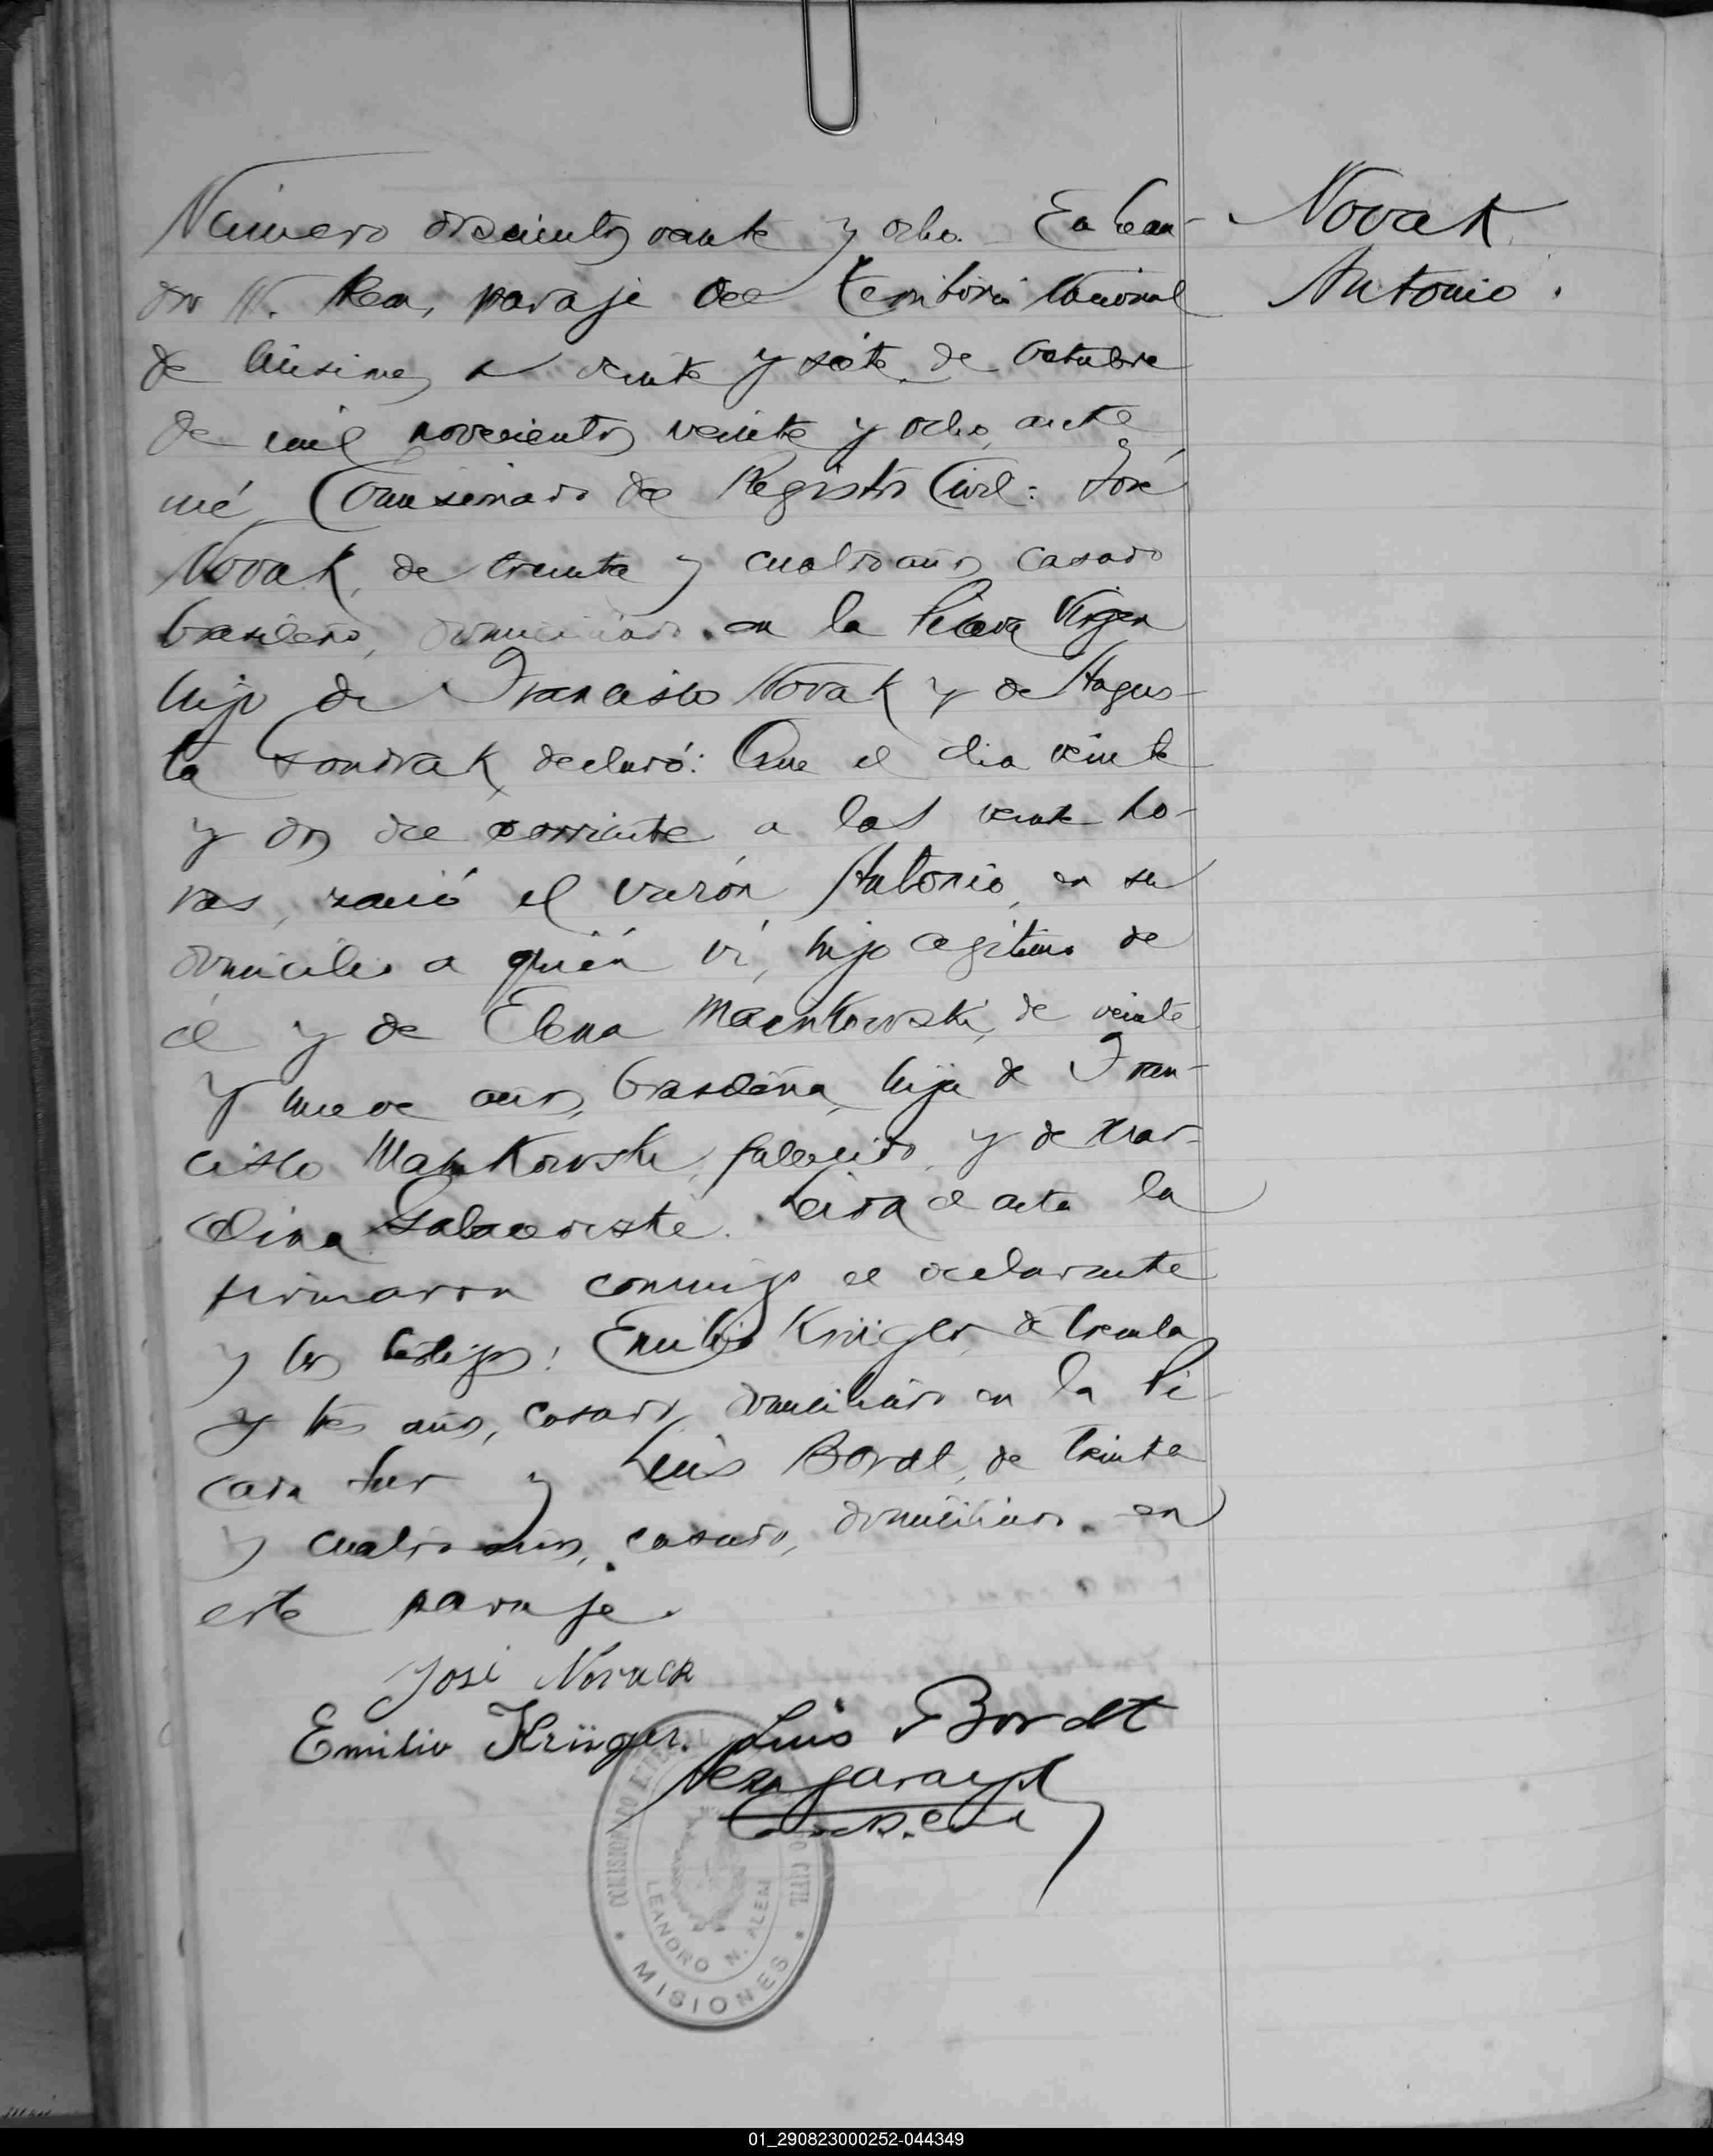 Número doscientos veinte y ocho. En Lean-
dro N. Alem, paraje del Territorio Nacional
de Misiones, a veinte y siete de Octubre
de mil novecientos veinte y ocho, ante
mé, Comisionado de Registro Civil: José
Novak, de treinta y cuatro años, casado
brasilero, domiciliado en la Picada Virgen
hijo de Francisco Novak y de Hagus-
ta Sondrak, declaró: Que el dia veinte
y dos del corriente a las veinte ho-
ras, nació el varón Antonio, en su
domicilio a quién ví, hijo legitimo de
él y de Elena Maenkowski, de veinte
y nueve años, brasileña, hija de Fran-
cisco Mahkowski, fallecido, y de
Leida el acta la
firmaron conmigo el declarante
y los testigos: Emilio Krüger, de treinta
y tres años, casado, domiciliado en la Pi-
cada Sur y Luis Bordt, de treinta
y cuatro años, casado, domiciliado en
este paraje.
José Novack
Emilio Krüger. Luis Bordt
Novak
Antonio.
COMISIONADO REGISTRO CIVIL
LEANDRO N. ALEM
* MISIONES *
01_290823000252-044349